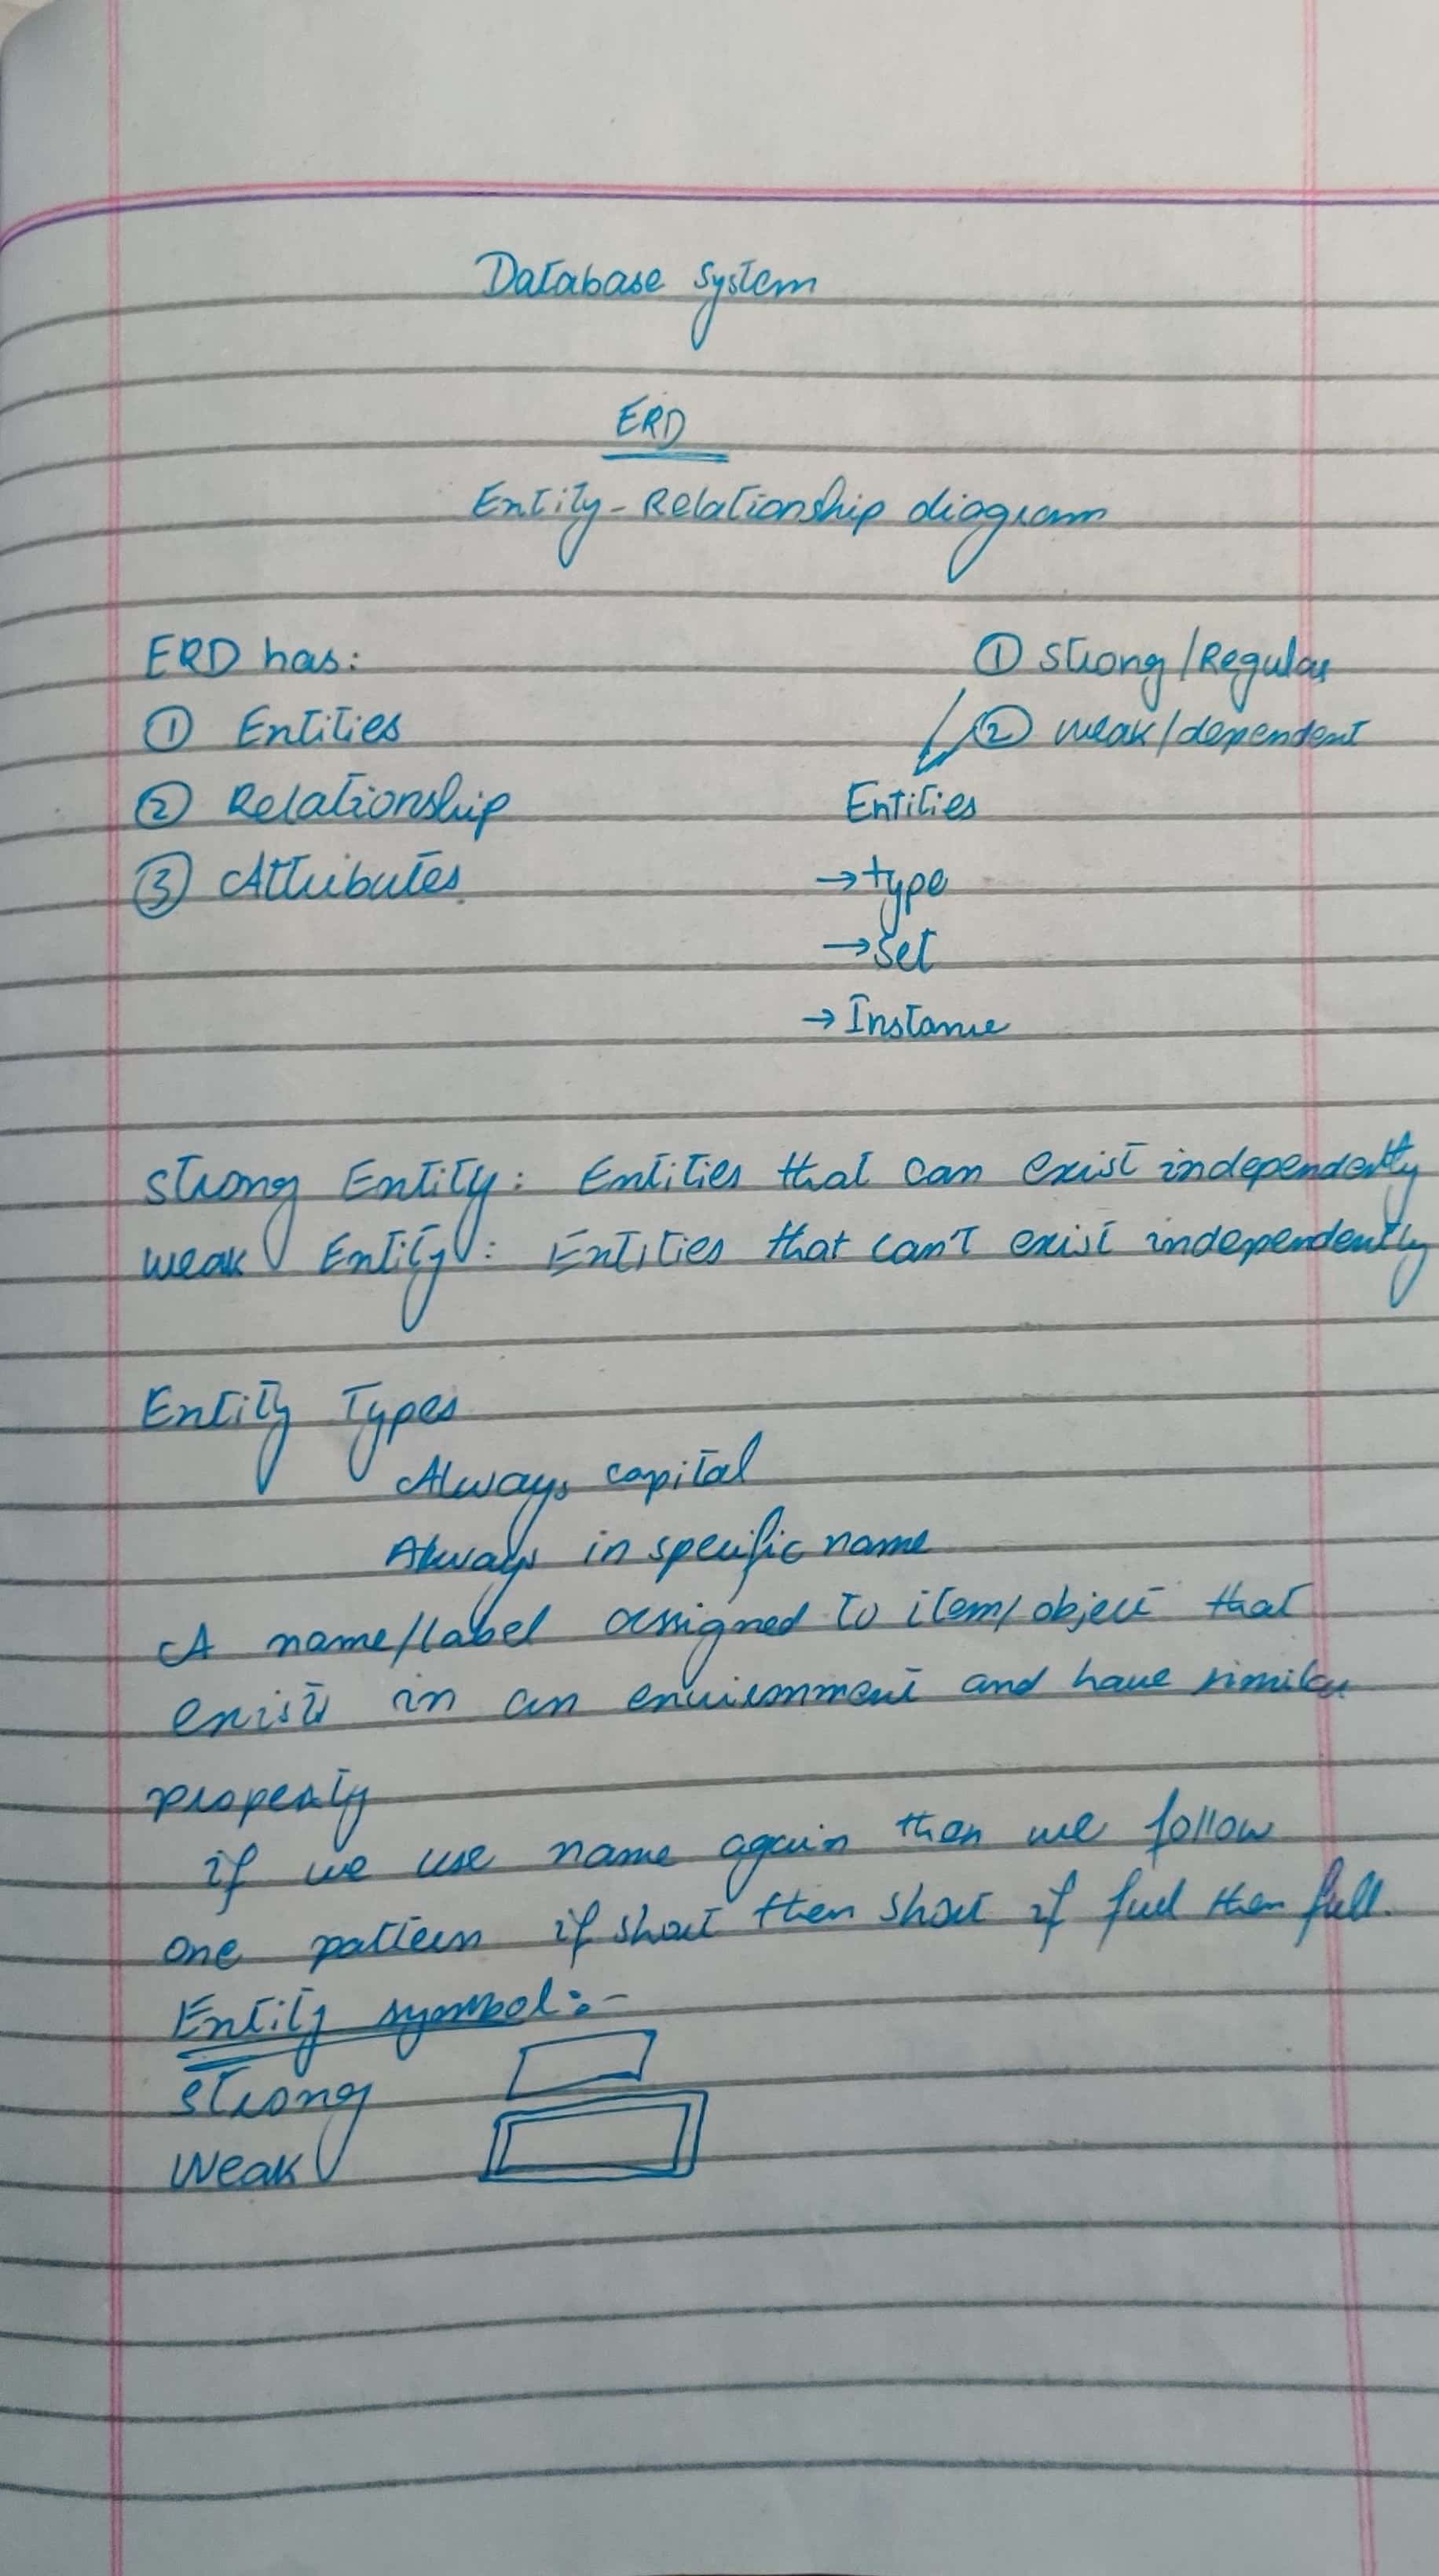 Database System
ERD
Entity-Relationship diagram
ERD has:
① Entities
② Relationship
③ Attributes
① Strong/Regular
② weak/dependent
Entities
→ type
→ Set
→ Instance
Strong Entity: Entities that can exist independently
weak Entity: Entities that can't exist independently
Entity Types
Always capital
Always in specific name
A name/label assigned to item/object that
exists in an environment and have similar
property
if we use name again then we follow
one pattern if short then short if full then full.
Entity symbol:-
Strong
Weak